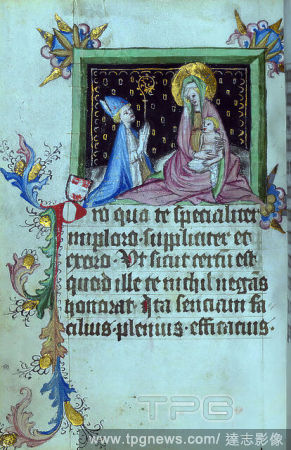 Pro qua te specialiter
imploro suppliciter et
exoro. Ut sicut certū est
quod ille te nichil negās
honorat. Ita senciam fa
cilius plenius efficacius.
TPG
www.tpgnews.com/達志影像